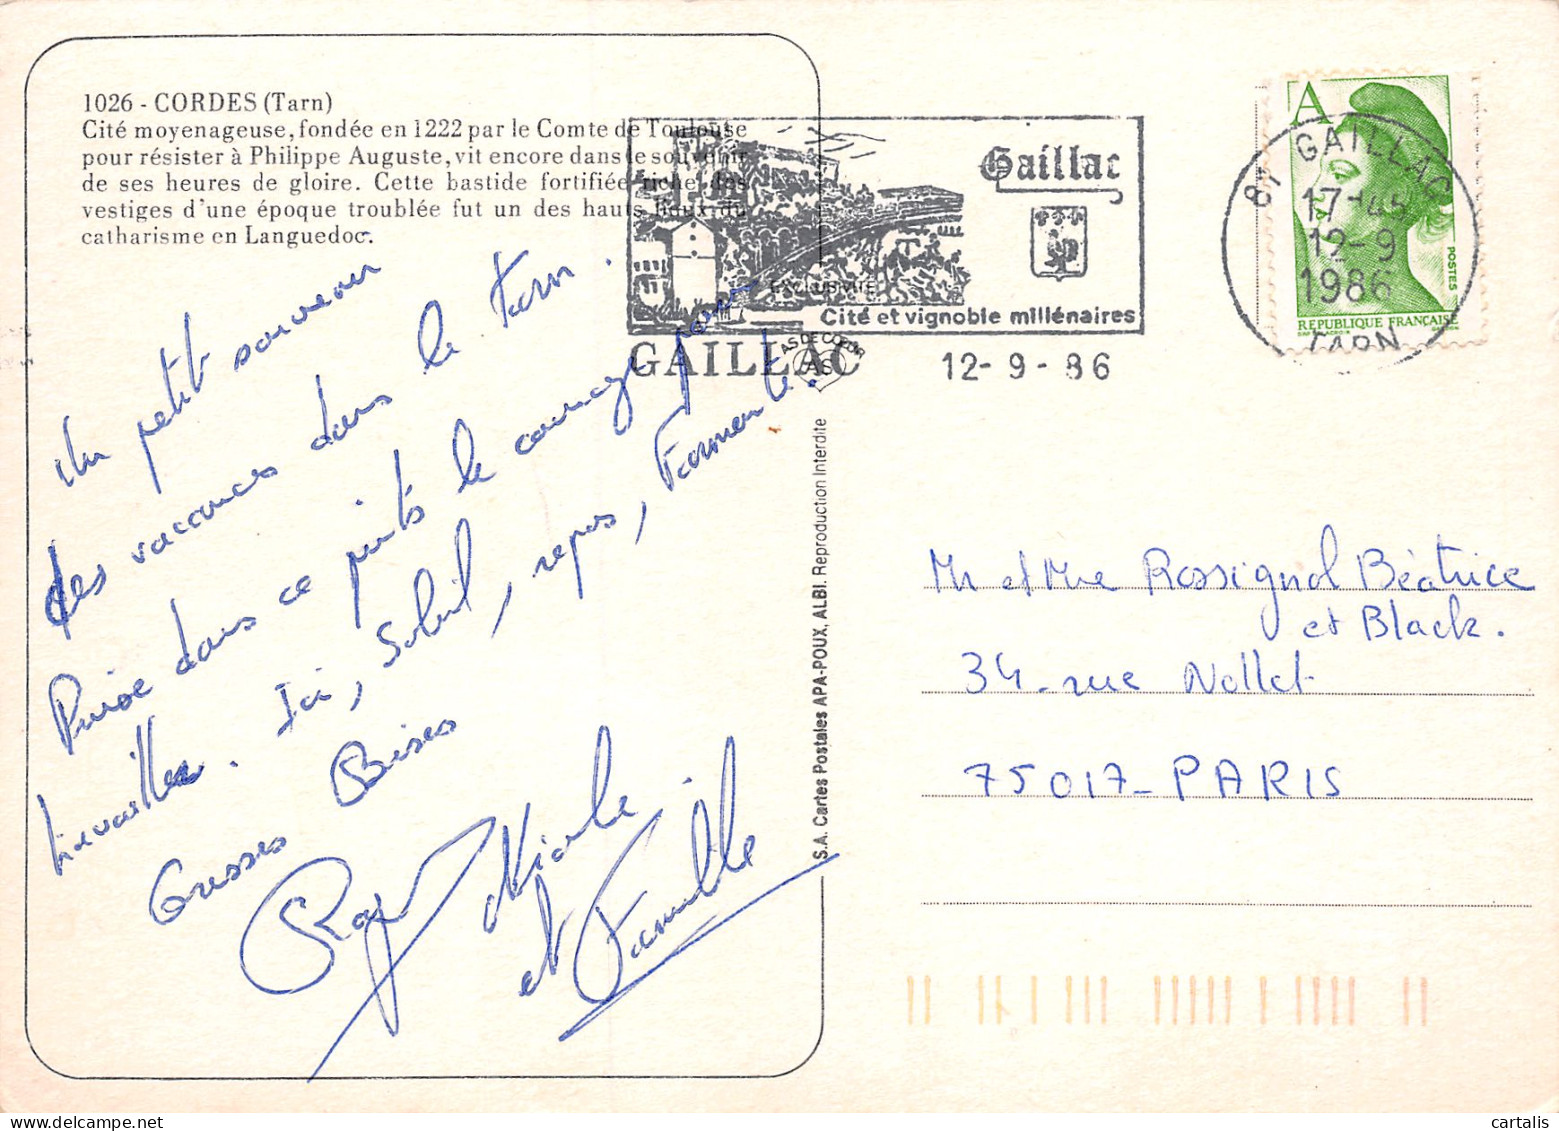 1026 - CORDES (Tarn)
Cité moyenageuse, fondée en 1222 par le Comte de Toulouse
pour résister à Philippe Auguste, vit encore dans le souvenir
de ses heures de gloire. Cette bastide fortifiée riche des
vestiges d'une époque troublée fut un des hauts lieux du
catharisme en Languedoc.
Un petit souvenir
des vacances dans le Tarn.
Puise dans ce puits le courage pour
travailler. Ici, Soleil, repos, Farniente.
Grosses Bises
Roger Nicole
et Famille
Gaillac
Cité et vignoble millénaires
GAILLAC
12-9-86
EXCLUSIVITÉ
AS DE COEUR
AS
81 GAILLAC
17-45
12-9
1986
TARN
A
POSTES
REPUBLIQUE FRANÇAISE
S.A. Cartes Postales APA-POUX, ALBI. Reproduction Interdite
Mr et Mme Rossignol Béatrice
et Black.
34 - rue Nollet
75017 - PARIS
cartalis